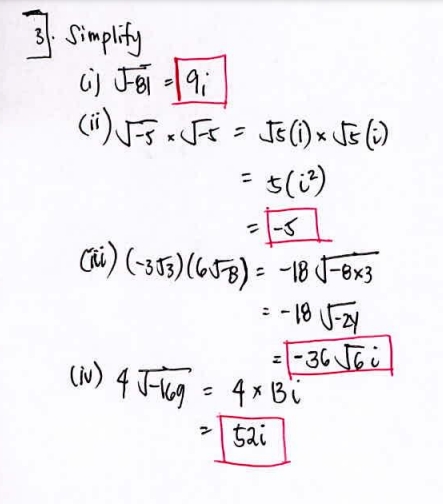 3]. Simplify
(i) √-81 = 9i
(ii) √-5 × √-5 = √5(i) × √5(i)
= 5(i²)
= -5
(iii) (-3√3)(6√-8) = -18√-8×3
= -18√-24
= -36√6 i
(iv) 4√-169 = 4 × 13i
= 52i